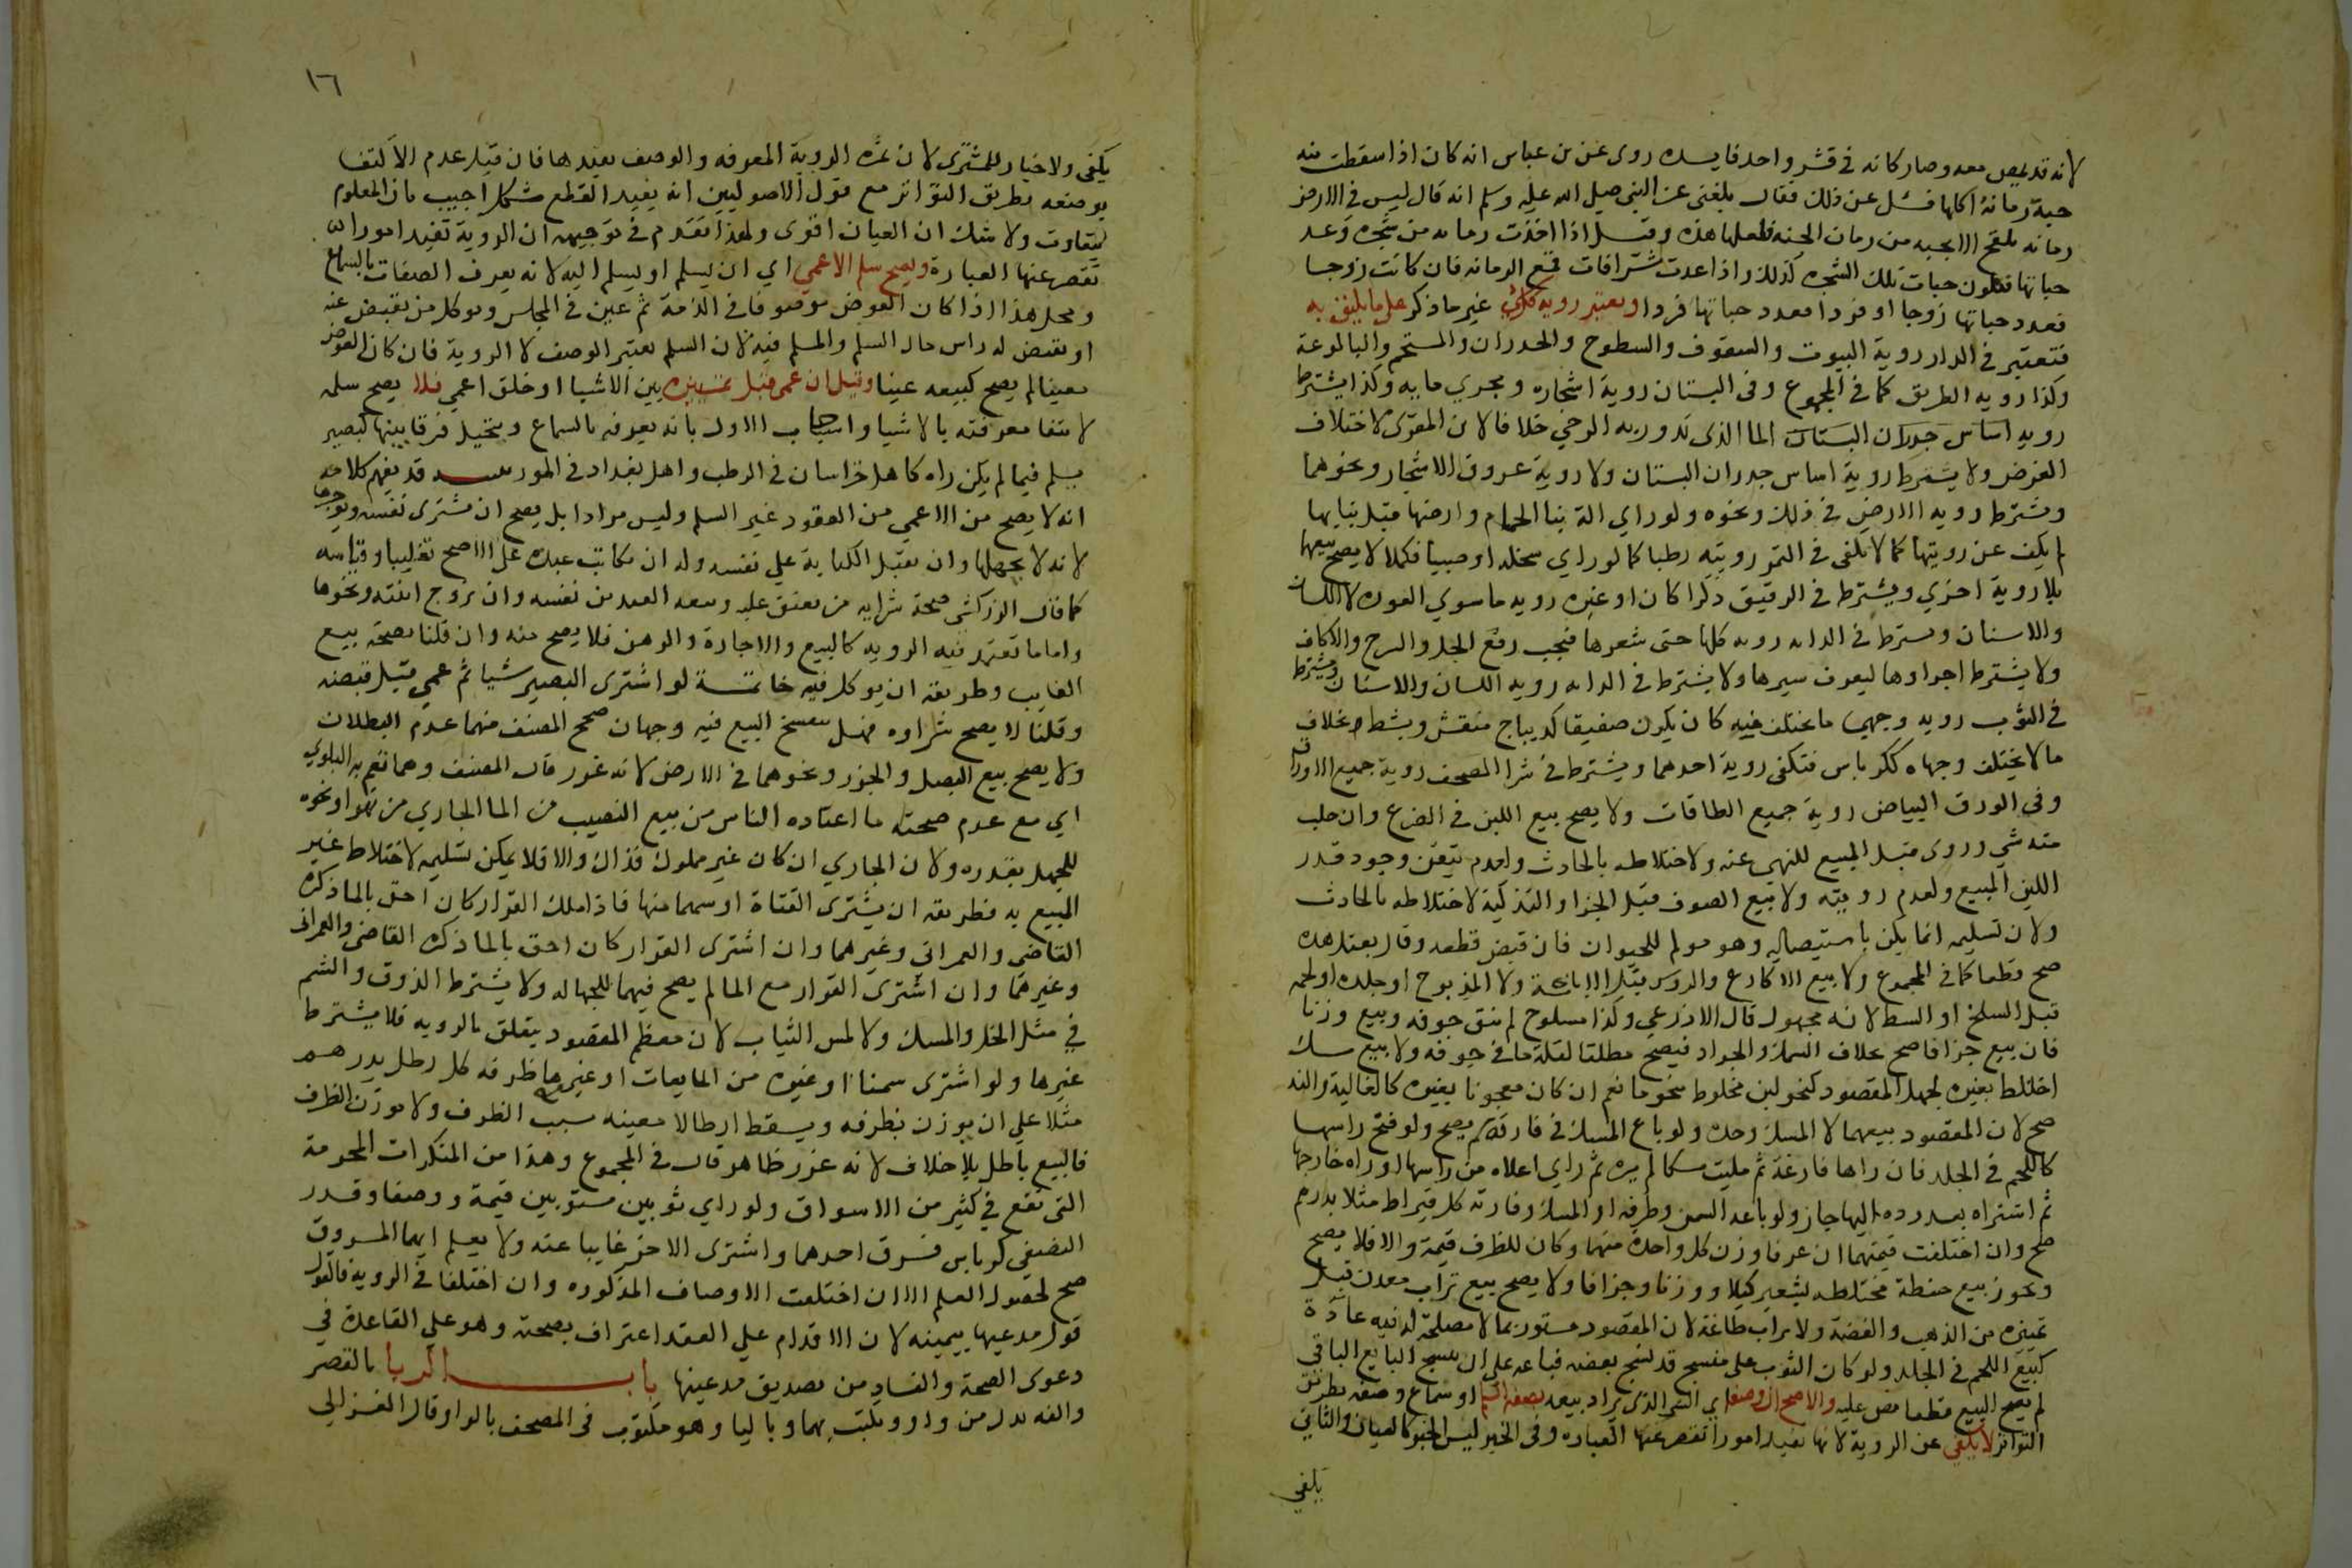 لانه قد يمص معه وصار كانه في قشر واحد فايده روى عن بن عباس انه كان اذا سقطت منه
حبة رمانة اكلها فسئل عن ذلك فقال بلغني عن النبي صلى الله عليه وسلم انه قال ليس في الارض
رمانه تلقح الا بحبه من رمان الجنه فلعلها هذه وقيل اذا اخذت رمانه من شجره وعد
حباتها فتكون حبات تلك الشجره كذلك واذا عدت شرافات قمع الرمانه فان كانت زوجا
فعدد حباتها زوجا او فردا فعدد حباتها فردا وتعتبر رويه كل شي غير ما ذكر على ما يليق به
فتعتبر في الدار روية البيوت والسقوف والسطوح والجدران والمستحم والبالوعة
وكذا رويه الطريق كما في المجموع وفي البستان روية اشجاره ومجري مايه وكذا يشترط
رويه اساس جدران البستان الما الذي تدور به الرحي خلافا لابن المقري لاختلاف
الغرض ولا يشترط روية اساس جدران البستان ولا روية عروق الاشجار ونحوهما
ويشترط رويه الارض في ذلك ونحوه ولو راي الة بنا الحمام وارضها قبل بنايها
لم يكف عن رويتها كما لا يكفي في التمر رويته رطبا كما لو راي سخله او صبيا فكملا لا يصح بيعهما
بلا روية اخري ويشترط في الرقيق ذكرا كان او غيره رويه ما سوي العوره لا اللسان
والاسنان ويشترط في الدابه رويه كلها حتى شعرها فيجب رفع الجل والسرج والاكاف
ولا يشترط اجراوها ليعرف سيرها ولا يشترط في الدابه رويه اللسان والاسنان ويشترط
في الثوب رويه وجهي ما يختلف فيه كان يكون صفيقا كديباج منقش وبسط بخلاف
ما لا يختلف وجهاه ككرباس فتكفي روية احدهما ويشترط في شرا المصحف روية جميع الاوراق
وفي الورق البياض روية جميع الطاقات ولا يصح بيع اللبن في الضرع وان حلب
منه شي وروى قبل البيع للنهي عنه ولاختلاطه بالحادث ولعدم تيقن وجود قدر
اللبن المبيع ولعدم رويته ولا بيع الصوف قبل الجز او التذكية لاختلاطه بالحادث
ولان تسليمه انما يمكن باستيصاله وهو مولم للحيوان فان قبض قطعه وقال بعتك هذه
صح قطعا كما في المجموع ولا بيع الاكارع والروس قبل الابانة ولا المذبوح او جلده او لحمه
قبل السلخ او السمط لانه مجهول قال الاذرعي وكذا مسلوخ لم ينق جوفه وبيع وزنا
فان بيع جزافا صح بخلاف السمك والجراد فيصح مطلقا لقلة ما في جوفه ولا بيع مسك
اختلط بغيره لجهل المقصود كنحو لبن مخلوط بنحو ما نعم ان كان معجونا بغيره كالغالية والند
صح لان المقصود بيعهما لا المسك وحده ولو باع المسك في فارته لم يصح ولو فتح راسها
كاللحم في الجلد فان راها فارغة ثم مليت مسكا لم يره ثم راي اعلاه من راسها او راه خارجها
ثم اشتراه بعد رده اليها جاز ولو باعه السمن وظرفه او المسك وفارته كل قيراط مثلا بدرهم
صح وان اختلفت قيمتهما ان عرفا وزن كل واحدة منهما وكان للظرف قيمة والا فلا يصح
ويجوز بيع حنطة مختلطه بشعير كيلا ووزنا وجزافا ولا يصح بيع تراب معدن قبل
تمييزه من الذهب والفضة ولا تراب صاغة لان المقصود مستور بما لا مصلحة له فيه عادة
كبيع اللحم في الجلد ولو كان الثوب على منسج قد نسج بعضه فباعه على ان ينسج البايع الباقي
لم يصح البيع قطعا نص عليه والاصح ان وصفه اي الشي الذي يراد بيعه بصفة السلم او سماع وصفه بطريق
التواتر لا يكفي عن الروية لانها تفيد امورا تقصر عنها العباره وفي الخبر ليس الخبر كالعيان والثاني
يكفي
١٦
يكفي ولا خيار للمشتري لان ثمرة الروية المعرفه والوصف يفيدها فان قيل عدم الاكتفا
بوصفه بطريق التواتر مع قول الاصوليين انه يفيد القطع مشكل اجيب بان المعلوم
يتفاوت ولا شك ان العيان اقوى ولهذا تقدم في توجيهه ان الروية تفيد امورا
تقصر عنها العبارة ويصح سلم الاعمي اي ان يسلم او يسلم اليه لانه يعرف الصفات بالسماع
ومحل هذا اذا كان العوض موصوفا في الذمة ثم عين في المجلس ويوكل من يقبض عنه
او يقبض له راس مال السلم والمسلم فيه لان السلم يعتبر الوصف لا الروية فان كان العوض
معينا لم يصح كبيعه عينا وقيل ان عمي قبل تمييزه بين الاشيا او خلق اعمي فلا يصح سلمه
لانتفا معرفته بالاشيا واجاب الاول بانه يعرفه بالسماع ويتخيل فرقا بينها كبصير
يسلم فيما لم يكن راه كاهل خراسان في الرطب واهل بغداد في الموز تنبيه قد يفهم كلامه
انه لا يصح من الاعمي من العقود غير السلم وليس مرادا بل يصح ان يشتري نفسه ويوجرها
لانه لا يجهلها وان يقبل الكتابة على نفسه وله ان يكاتب عبده على الاصح تغليبا وقياسه
كما قال الزركشي صحة شرايه من يعتق عليه وبيعه العبد من نفسه وان يزوج ابنته ونحوها
واما ما تعتمد فيه الرويه كالبيع والاجارة والرهن فلا يصح منه وان قلنا بصحة بيع
الغايب وطريقه ان يوكل فيه خاتمة لو اشترى البصير شيا ثم عمي قبل قبضه
وقلنا لا يصح شراوه فهل ينفسخ البيع فيه وجهان صحح المصنف منهما عدم البطلان
ولا يصح بيع البصل والجزر ونحوهما في الارض لانه غرر قال المصنف ومما تعم به البلوي
اي مع عدم صحته ما اعتاده الناس من بيع النصيب من الما الجاري من نهر او نحوه
للجهل بقدره ولان الجاري ان كان غير مملوك فذاك والا فلا يمكن تسليمه لاختلاط غير
المبيع به فطريقه ان يشتري القناة او سهما منها فاذا ملك القرار كان احق بالما ذكره
القاضي والعمراني وغيرهما وان اشترى القرار كان احق بالما ذكره القاضي والعمراني
وغيرهما وان اشترى القرار مع الما لم يصح فيهما للجهاله ولا يشترط الذوق والشم
في مثل الخل والمسك ولا لمس الثياب لان معظم المقصود يتعلق بالرويه فلا يشترط
غيرها ولو اشترى سمنا او غيره من المايعات او غيرها في ظرفه كل رطل بدرهم
مثلا علي ان يوزن بظرفه ويسقط ارطالا معينه بسبب الظرف ولا يوزن الظرف
فالبيع باطل بلا خلاف لانه غرر ظاهر قال في المجموع وهذا من المنكرات المحرمة
التي تقع في كثير من الاسواق ولو راي ثوبين مستويين قيمة ووصفا وقدر
النصفي كرباس فسرق احدهما واشترى الاخر غايبا عنه ولا يعلم ايهما المسروق
صح لحصول العلم الا ان اختلفت الاوصاف المذكوره وان اختلفا في الروية فالقول
قول مدعيها بيمينه لان الاقدام علي العقد اعتراف بصحته وهو علي القاعدة في
دعوى الصحة والفساد من تصديق مدعيها باب الربا بالقصر
والفه بدل من واو ويكتب بهما وباليا وهو مكتوب في المصحف بالواو قال الغزالي